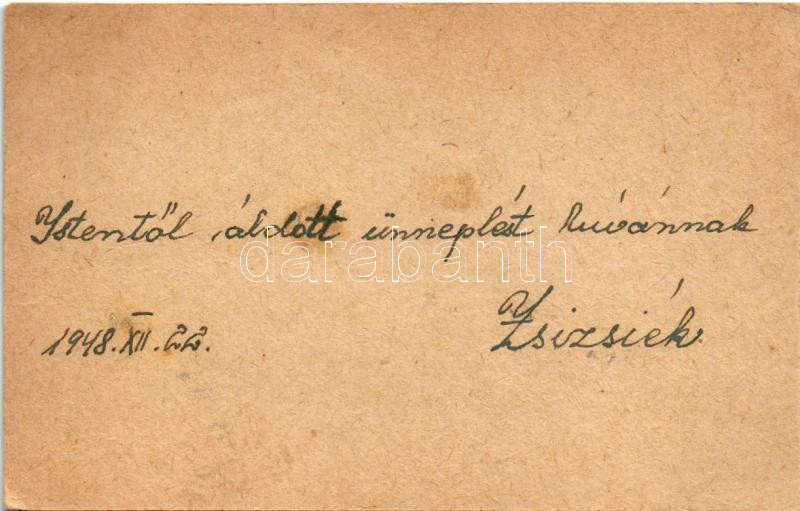 Istentől áldott ünneplést kívánnak
darabanth
Zsizsiék
1948. XII. 22.